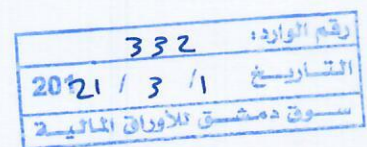 رقم الوارد: 332
التاريخ 1 / 3 / 2021
سوق دمشق للأوراق المالية